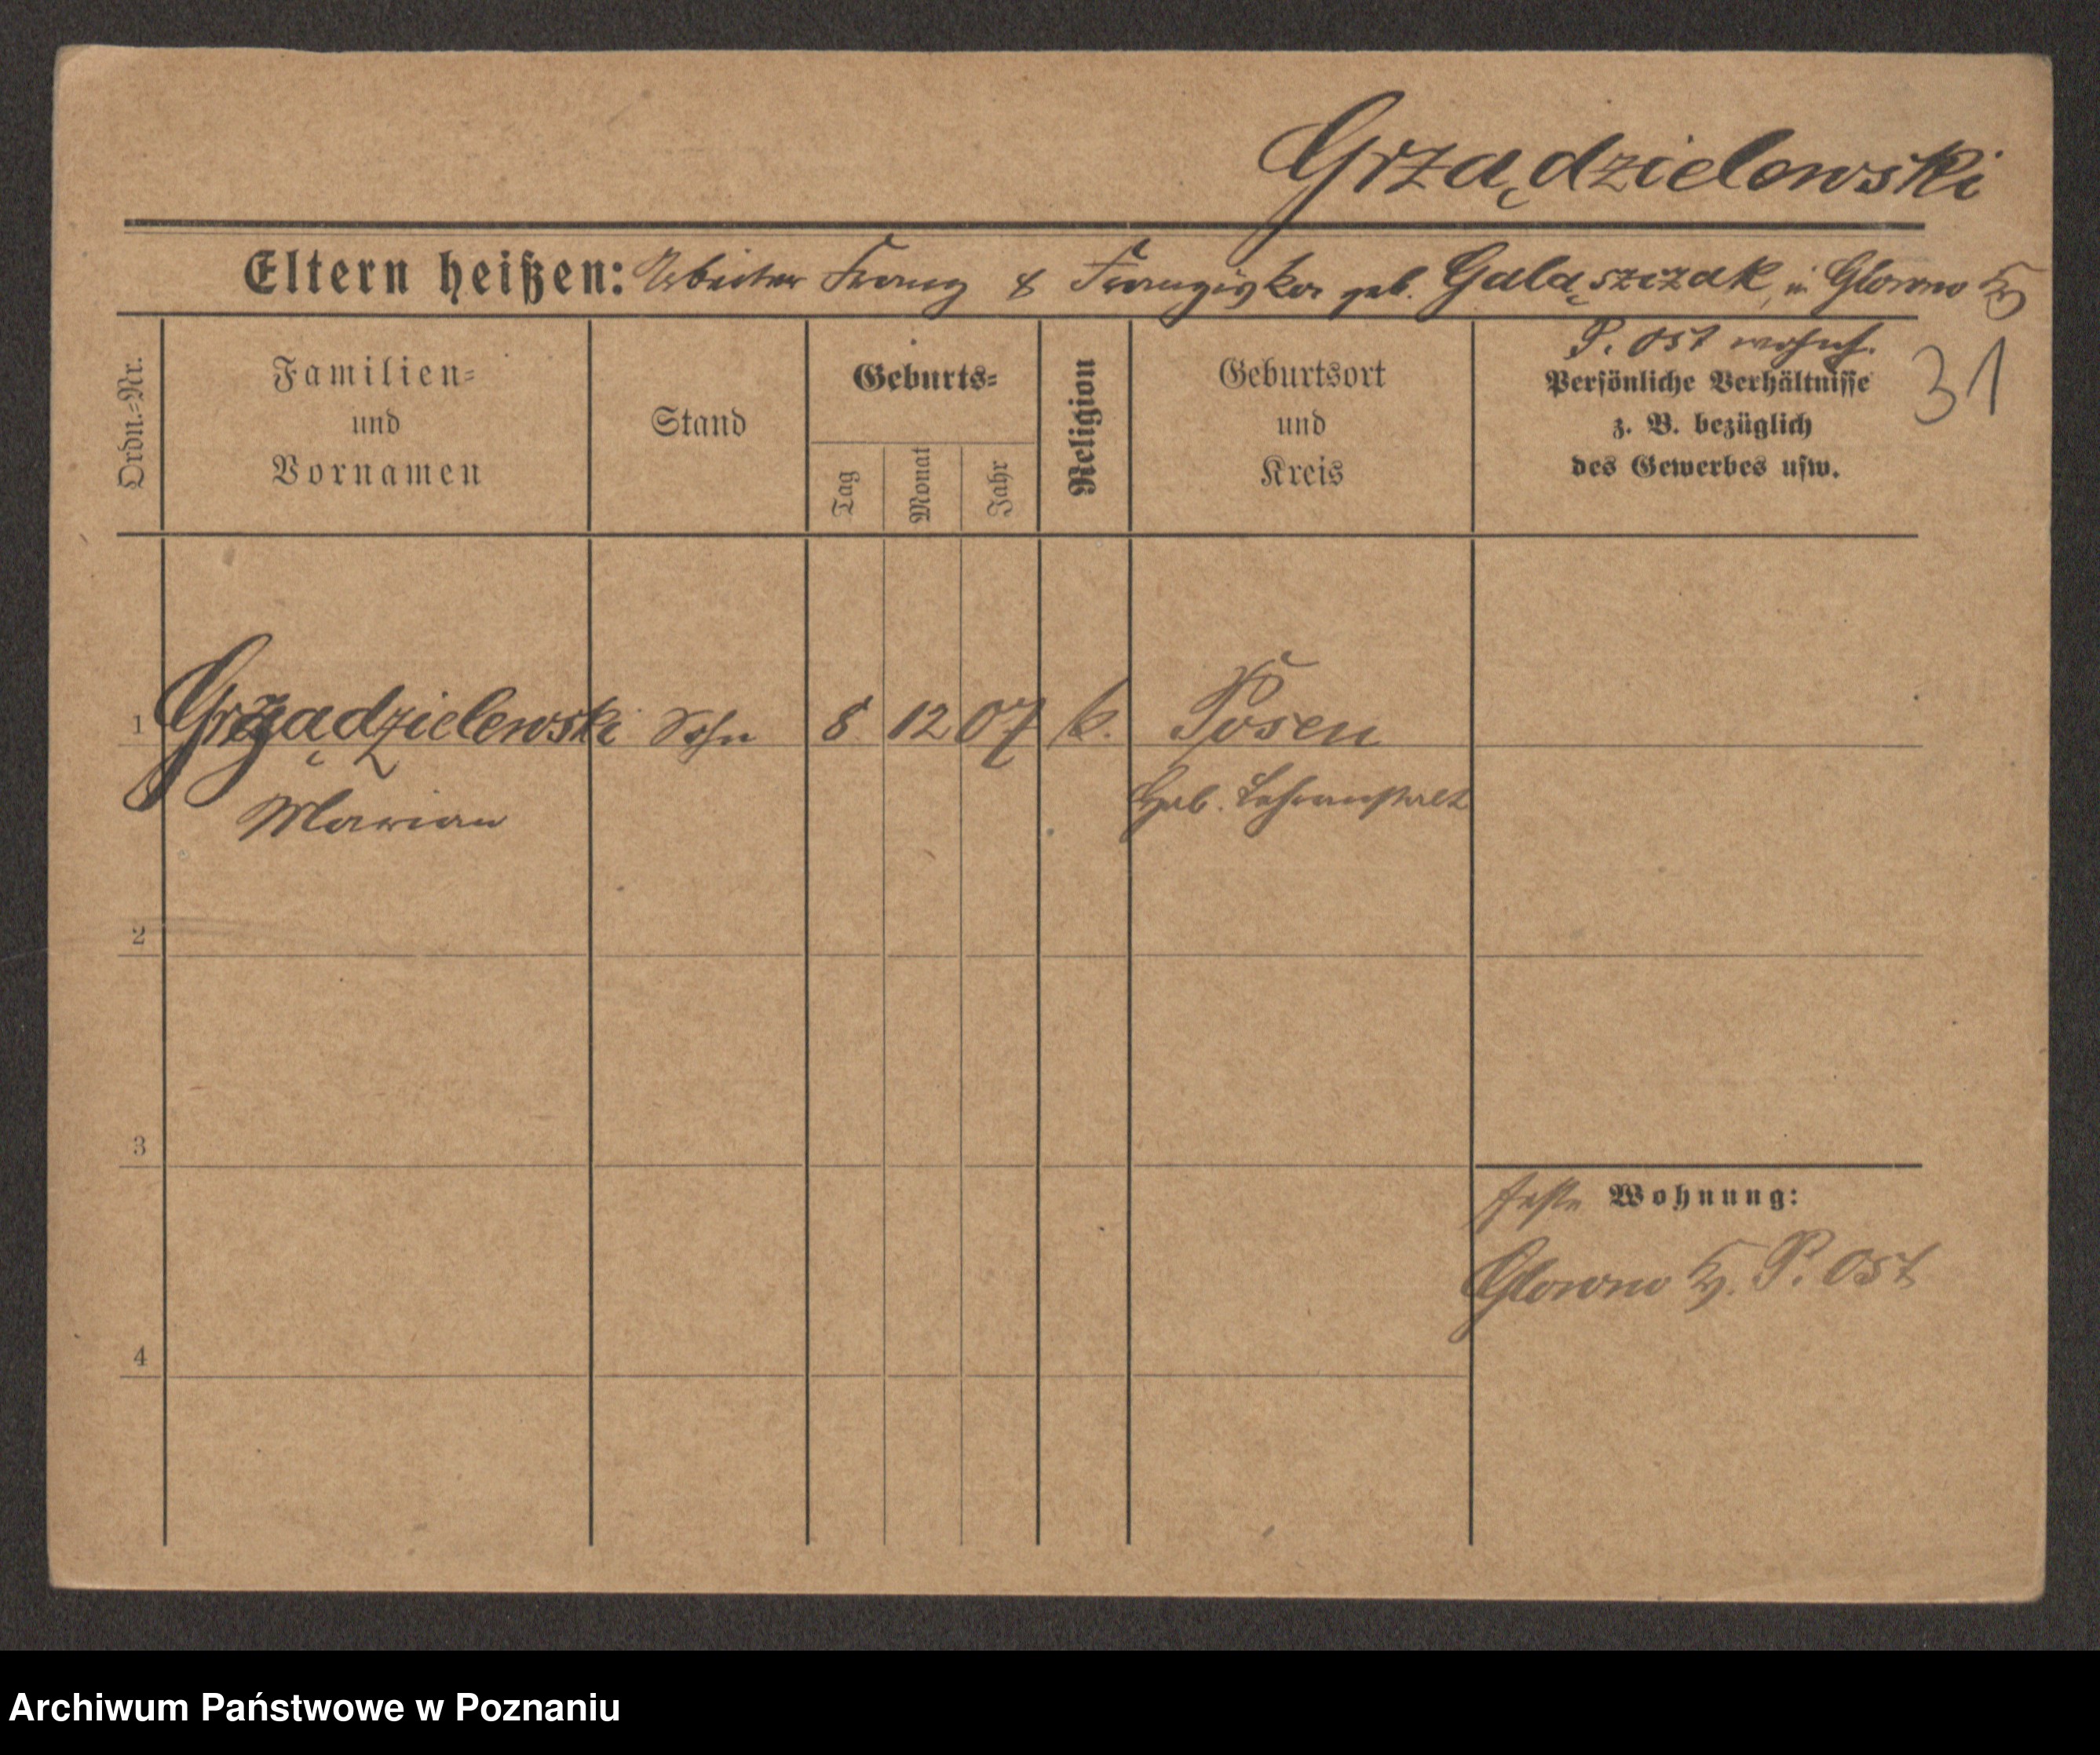 Grządzielewski
Eltern heißen: Arbeiter Franz & Franziska geb. Galąszczak, in Glowno Kr.
P. Ost wohnh.
31
Ordn.=Nr.
Familien=
und
Vornamen
Stand
Geburts=
Tag
Monat
Jahr
Religion
Geburtsort
und
Kreis
Persönliche Verhältnisse
z. B. bezüglich
des Gewerbes usw.
1 Grządzielewski Sohn 8 12 07 k. Posen
Marian Heb. Lehranstalt
2
3
feste Wohnung:
Glowno Kr. P. Ost
4
Archiwum Państwowe w Poznaniu